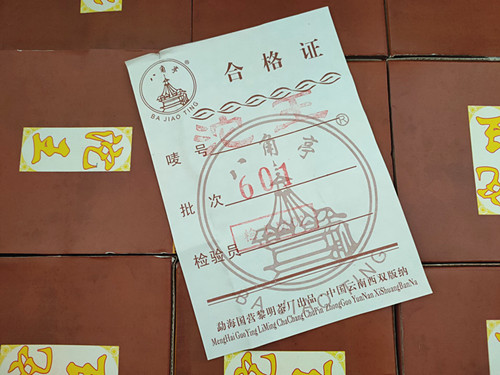 八角亭®
BA JIAO TING
合格证
唛号 沱王
八角亭®
批次 601
检验员
BA JIAO TING
勐海国营黎明茶厂出品·中国云南西双版纳
MengHai GuoYing LiMing ChaChang ChuPin·ZhongGuo YunNan XiShuangBanNa
沱王
沱王